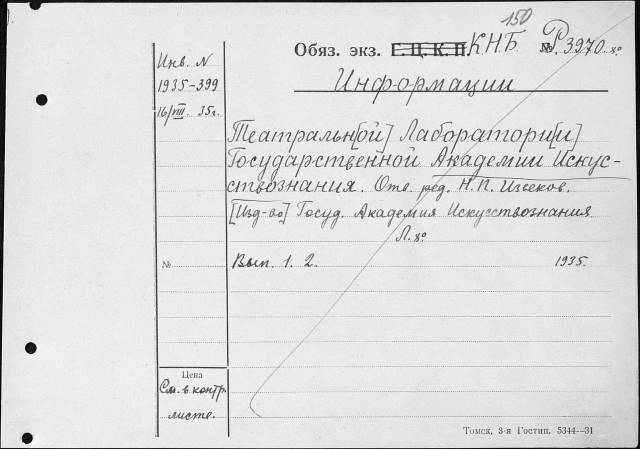 150
Обяз. экз. Г. Ц. К. П. К.Н.Б. № Р.3970.8º
Инв. N
1935-399
16/VIII 35г.
Информации
Театральн[ой] Лаборатори[и]
Государственной Академии Искус-
ствознания. Отв. ред. Н.П. Извеков.
[Изд-во] Госуд. Академия Искусствознания
Л. 8º
№ Вып. 1. 2. 1935.
Цена
См. в контр.
листе.
Томск, 3-я Гостип. 5344—31